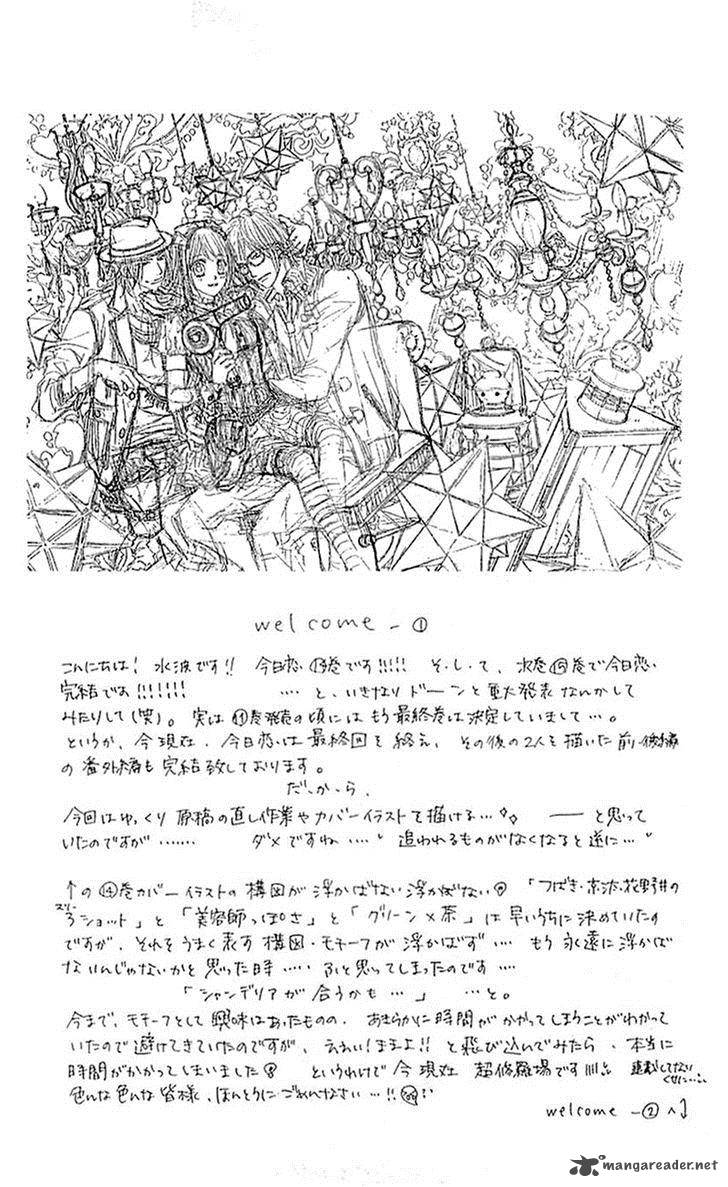 welcome - ①
こんにちは! 水波です!! 今日恋 ⑭巻です!!!!! そ・し・て、次巻⑮巻で今日恋
完結です!!!!!!! ‥‥と、いきなりドーンと重大発表なんかして
みたりして(笑)。実は⑪巻発売の頃にはもう最終巻は決定していまして…。
というか、今現在、今日恋は最終回を終え、その後の2人を描いた前・後編
の番外編も完結致しております。
だ・か・ら、
今回はゆっくり原稿の直し作業やカバーイラストを描ける… ――と思って
いたのですが…… ダメですね… 追われるものがなくなると逆に…
↑の⑭巻カバーイラストの構図が浮かばない浮かばない 「つばき・京汰・花野井の
スリーショット」と「美容師っぽさ」と「グリーン×茶」は早いうちに決めていたの
ですが、それをうまく表す構図・モチーフが浮かばず… もう永遠に浮かば
ないんじゃないかと思った時… ふと思ってしまったのです…
「シャンデリアが合うかも…」 …と。
今まで、モチーフとして興味はあったものの、あきらかに時間がかかってしまうことがわかって
いたので避けてきていたのですが、ええい!ままよ!!と飛び込んでみたら、本当に
時間がかかってしまいました というわけで今現在 超修羅場です 連載してない
くせに…
色んな色んな皆様、ほんとうにごめんなさい…!!
welcome -② へ
mangareader.net